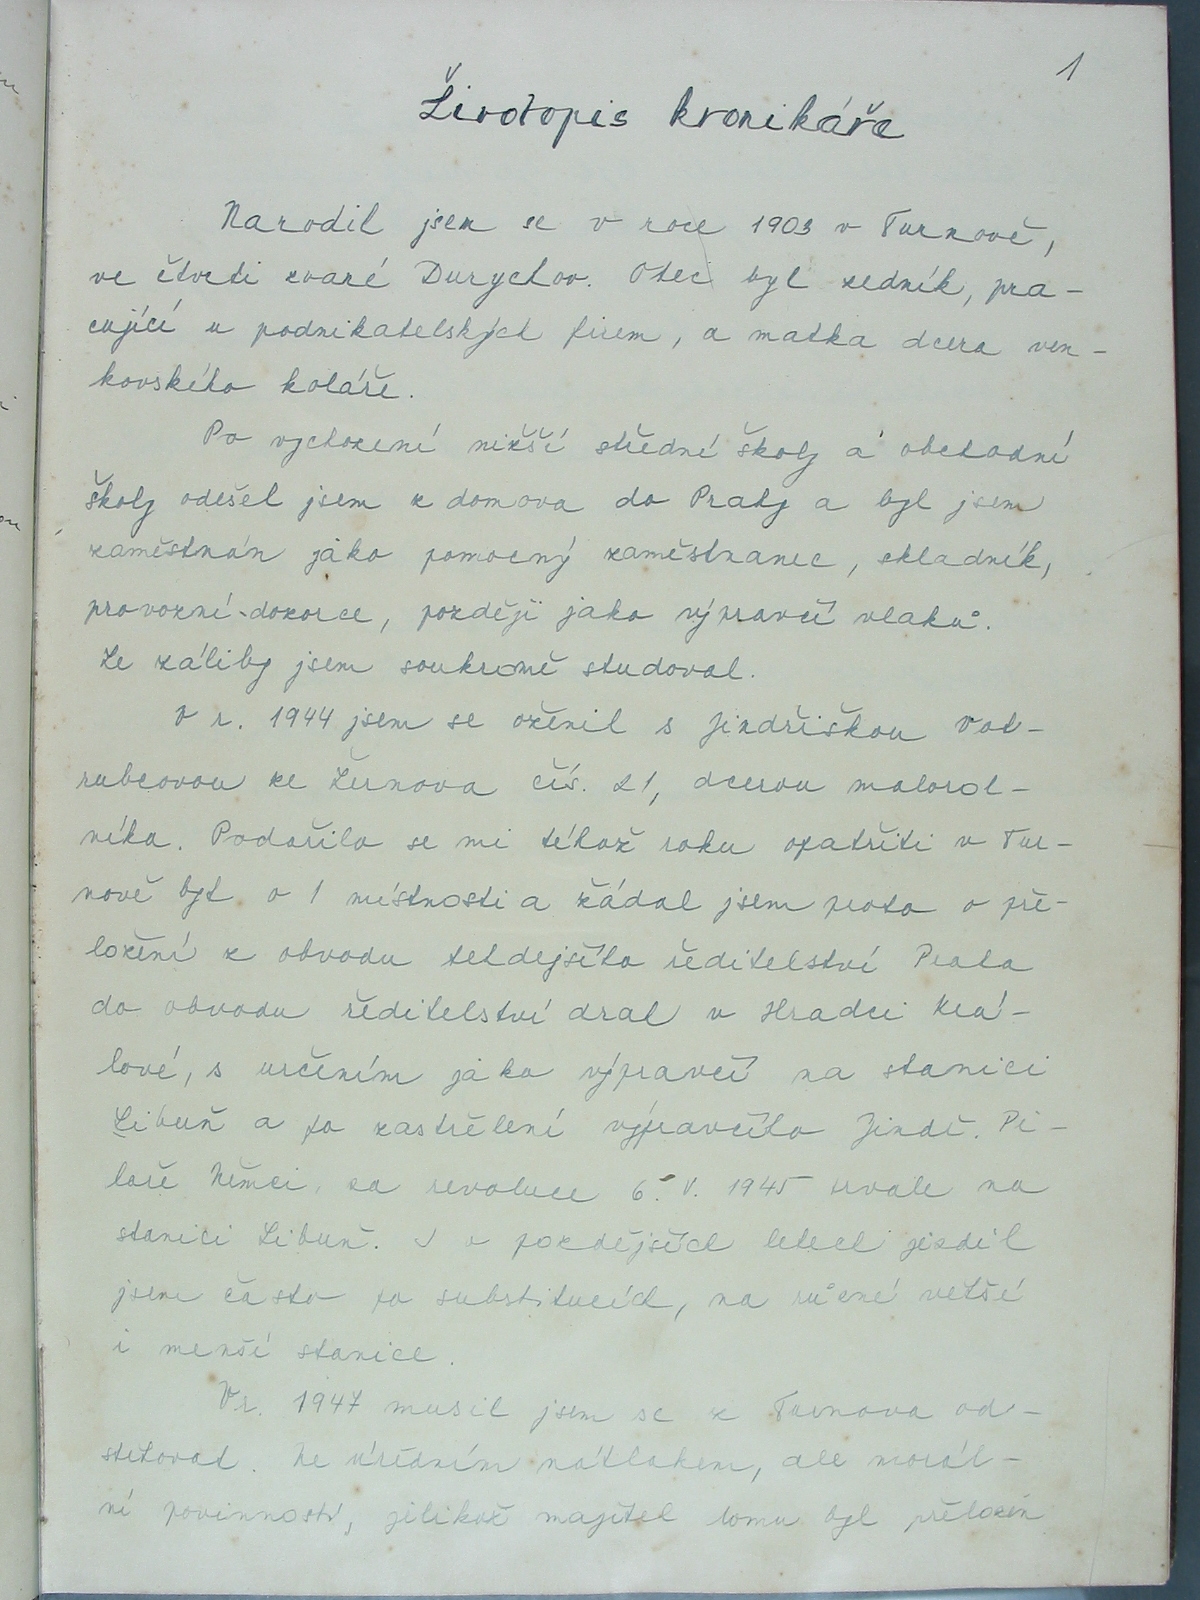 1
Životopis kronikáře
Narodil jsem se v roce 1903 v Turnově,
ve čtvrti zvané Durychov. Otec byl zedník, pra-
cující u podnikatelských firem, a matka dcera ven-
kovského koláře.
Po vychození nižší střední školy a obchodní
školy odešel jsem z domova do Prahy a byl jsem
zaměstnán jako pomocný zaměstnanec, skladník,
provozní dozorce, později jako výpravčí vlaků.
Ze záliby jsem soukromě studoval.
V r. 1944 jsem se oženil s Jindřiškou Vot-
rubcovou ze Žernova čís. 21, dcerou malorol-
níka. Podařilo se mi téhož roku opatřiti v Tur-
nově byt o 1 místnosti a žádal jsem proto o pře-
ložení z obvodu tehdejšího ředitelství Praha
do obvodu ředitelství drah v Hradci Krá-
lové, s určením jako výpravčí na stanici
Libuň a po zastřelení výpravčího Jindř. Pi-
laře Němci, za revoluce 6. V. 1945 trvale na
stanici Libuň. I v pozdějších letech jezdil
jsem často po substitucích, na různé větší
i menší stanice.
V r. 1947 musil jsem se z Turnova od-
stěhovat. Ne úředním nátlakem, ale morál-
ní povinností, jelikož majitel domu byl přeložen